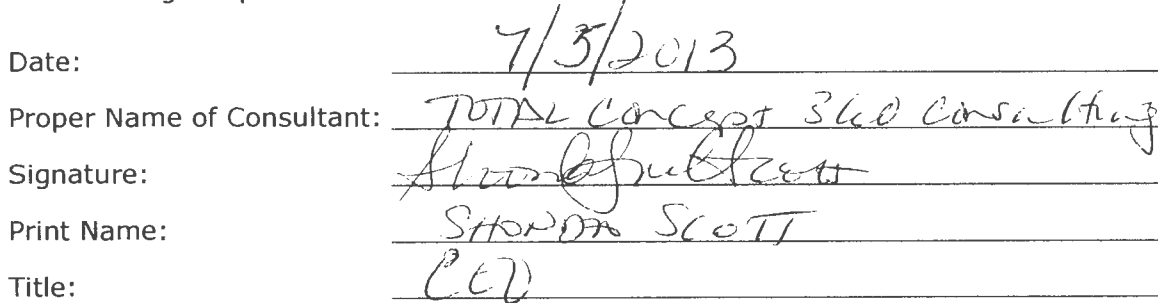 Date: 7/5/2013
Proper Name of Consultant: TOTAL Concept 360 Consulting
Signature:
Print Name: SHONDA SCOTT
Title: CEO